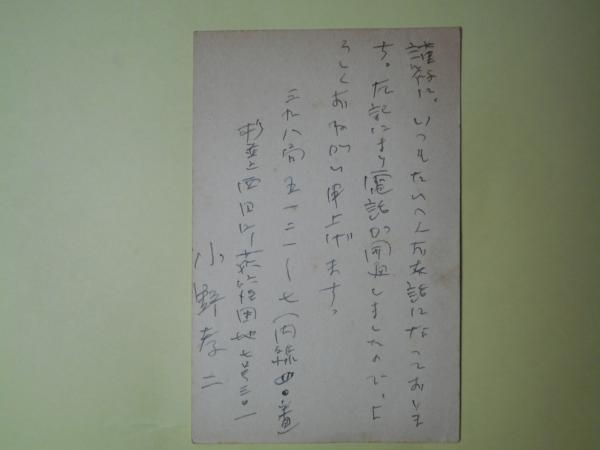 謹啓、いつもたいへんお世話になっておりま
す。左記により電話が開通しましたので、よ
ろしくおねがい申上げます。
三九八局 五一二一〜七(内線四〇番)
杉並 西田町 団地七号三〇一
小野孝二